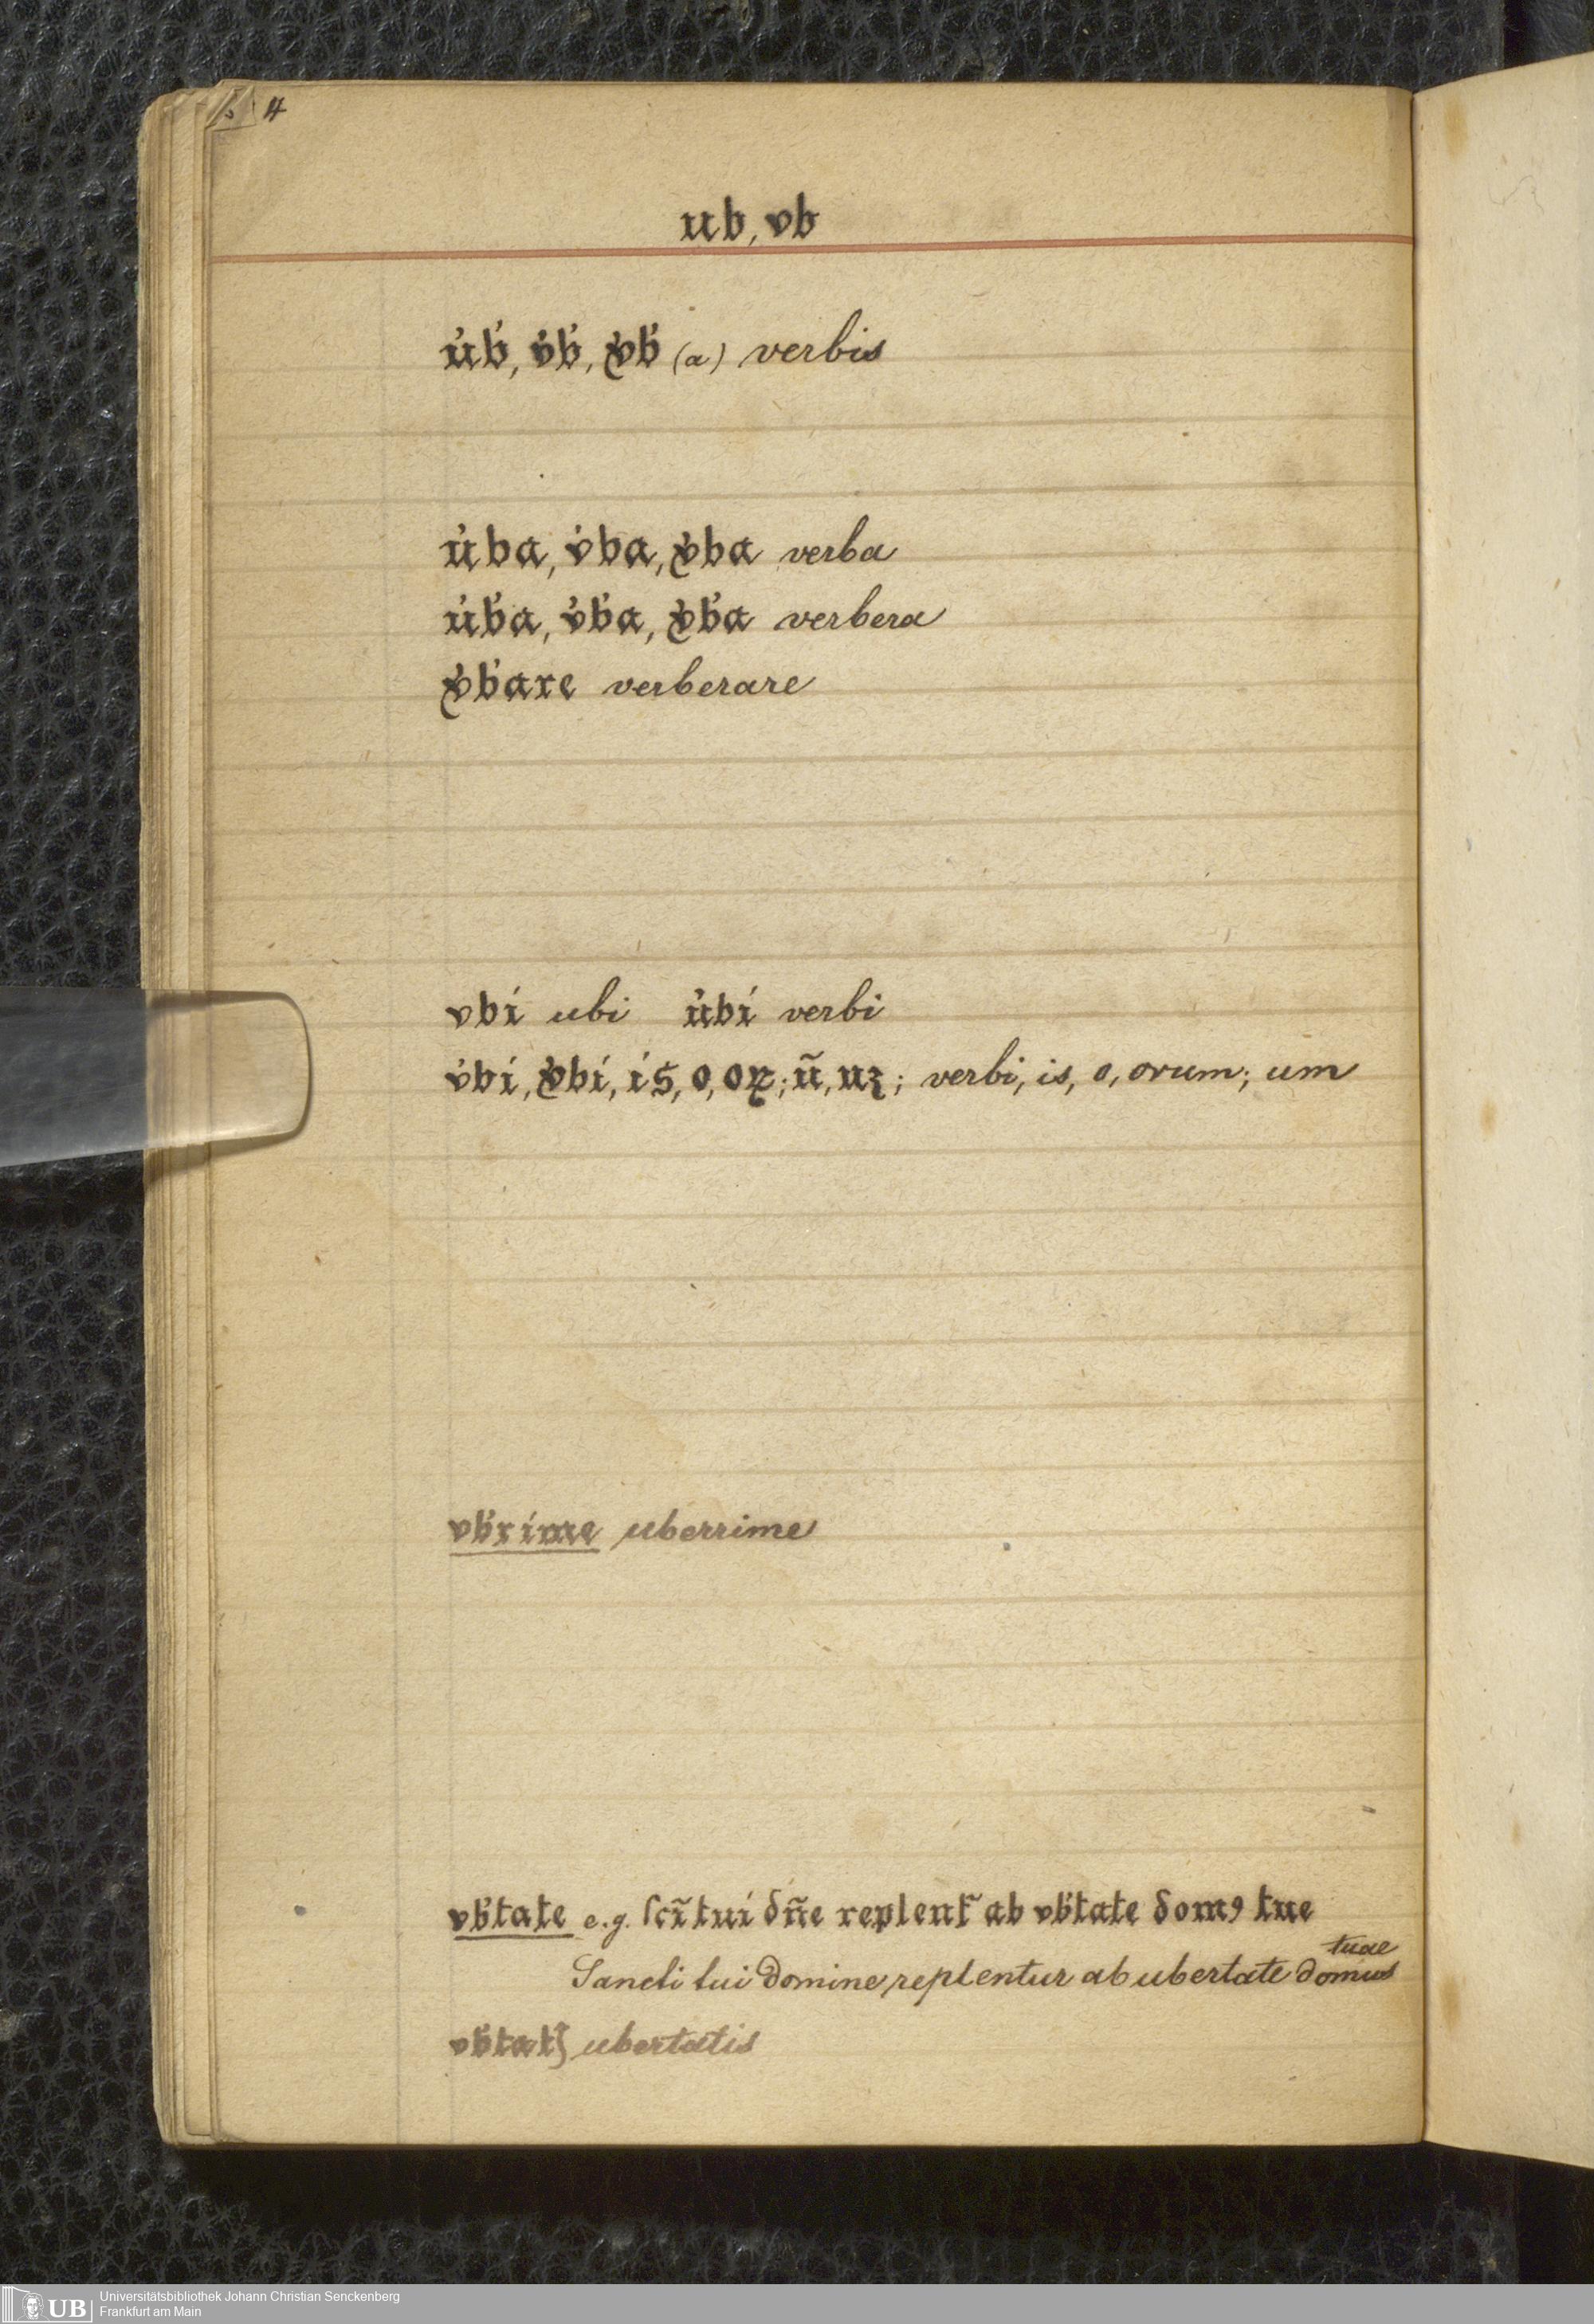 4
ub, vb
u̓b̓, v̓b̓, v̓b̓ (a) verbis
u̓ba, v̓ba, v̓ba verba
u̓b̓a, v̓b̓a, v̓b̓a verbera
v̓b̓are verberare
vbí ubi u̓bí verbi
v̓bí, v̓bí, ís, o, oꝝ; ũ, uꝫ; verbi, is, o, orum; um
vb̓ríme uberrime
vb̓tate e.g. ſcı̃ tuí dñe replent᷑ ab vb̓tate domꝰ tue
tuae
Sancti tui Domine replentur ab ubertate domus
vb̓tatꝭ ubertatis
UB Universitätsbibliothek Johann Christian Senckenberg
Frankfurt am Main